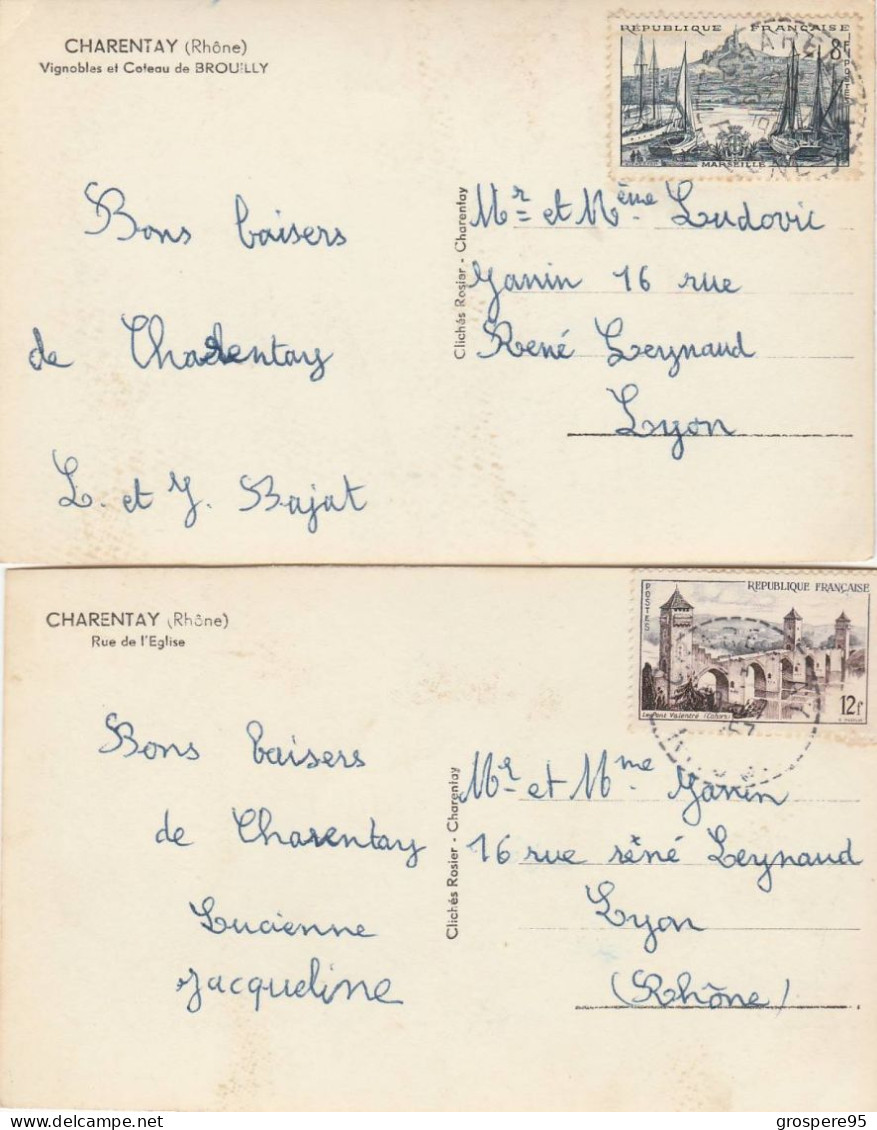 CHARENTAY (Rhône)
Vignobles et Coteau de BROUILLY
RÉPUBLIQUE FRANÇAISE
8F
POSTES
MARSEILLE
Bons baisers
de Charentay
L. et J. Bajat
Clichés Rosier - Charentay
Mr et Mème Ludovic
Janin 16 rue
René Leynaud
Lyon
CHARENTAY (Rhône)
Rue de l'Eglise
POSTES
RÉPUBLIQUE FRANÇAISE
12f
Le Pont Valentré (Cahors)
57
Bons baisers
de Charentay
Lucienne
Jacqueline
Clichés Rosier - Charentay
Mr et Mme Janin
16 rue réné Leynaud
Lyon
(Rhône)
grospere95